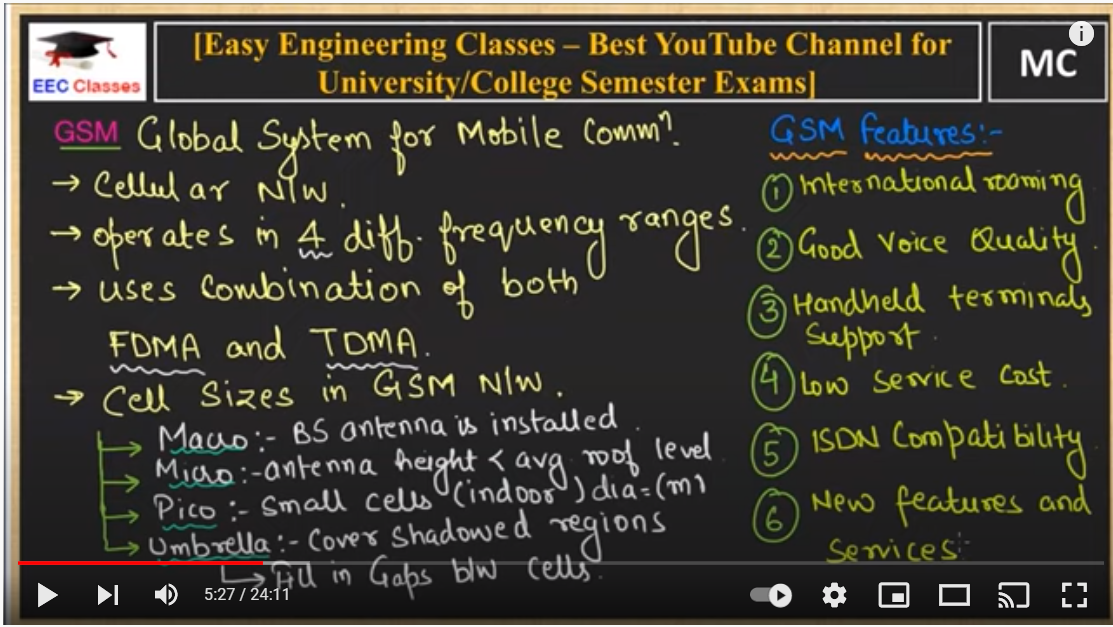 EEC Classes
[Easy Engineering Classes – Best YouTube Channel for
University/College Semester Exams]
MC
GSM Global System for Mobile Commⁿ.
→ Cellular N/W.
→ operates in 4 diff. frequency ranges.
→ uses combination of both
FDMA and TDMA.
→ Cell Sizes in GSM N/W.
→ Macro:- BS antenna is installed.
→ Micro:- antenna height < avg. roof level
→ Pico:- Small cells (indoor) dia=(m)
→ Umbrella:- Cover shadowed regions
→ Fill in Gaps b/w cells.
GSM features:-
① International roaming
② Good Voice Quality.
③ Handheld terminals
support.
④ Low Service Cost.
⑤ ISDN Compatibility
⑥ New features and
Services
5:27 / 24:11